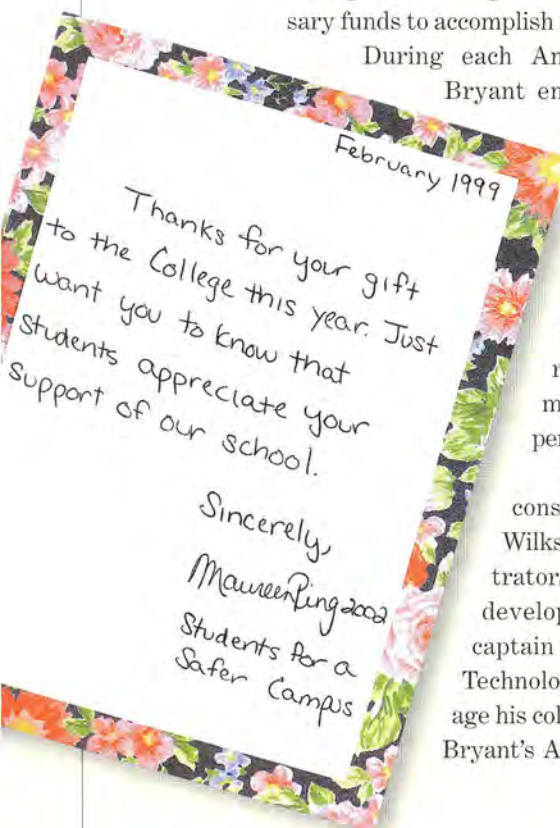 sary funds to accomplish
During each An
Bryant en
February 1999
Thanks for your gift
to the College this year. Just
want you to know that
students appreciate your
support of our school.
Sincerely,
Maureen 2002
Students for a
Safer Campus
r
m
per
cons
Wilks
trator
develop
captain
Technolo
age his col
Bryant's A